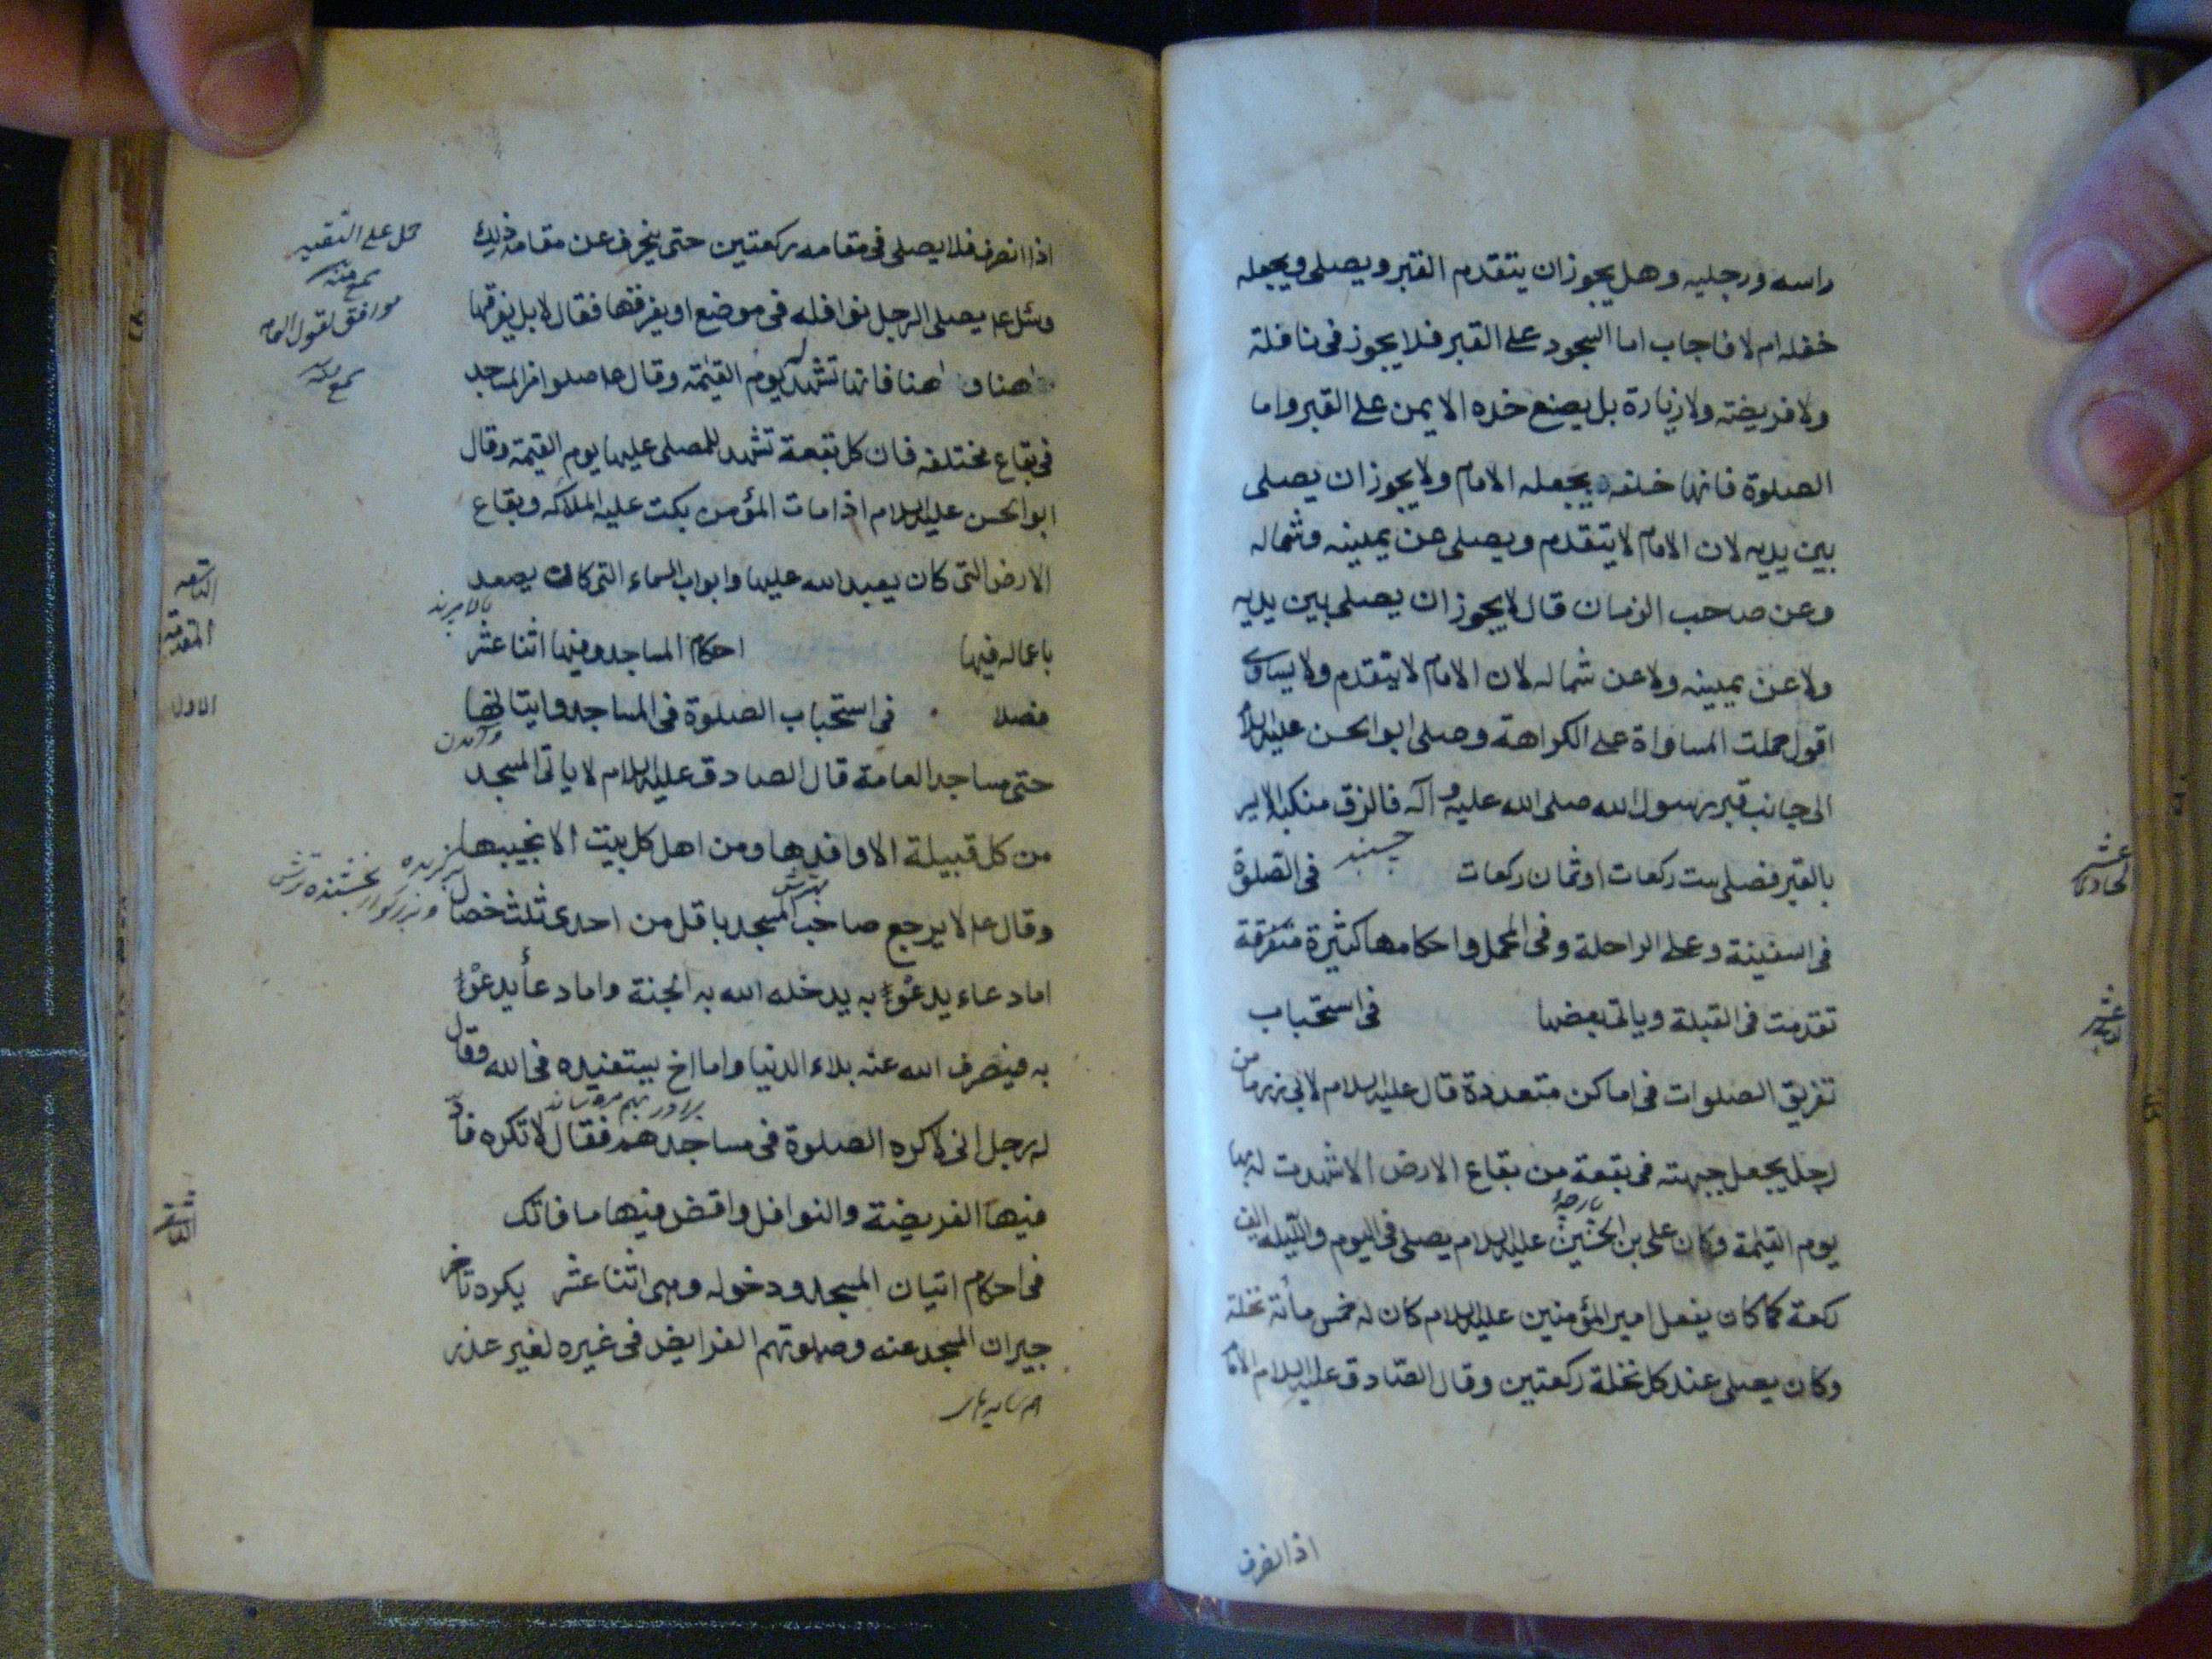 راسه ورجليه وهل يجوز ان يتقدم القبر ويصلى ويجعله
خفله ام لا فاجاب اما السجود على القبر فلا يجوز فى نافلة
ولا فريضته ولا زيارة بل يصنع خده الايمن على القبر واما
الصلوة فانها خلفه يجعله الامام ولا يجوز ان يصلى
بين يديه لان الامام لا يتقدم ويصلى عن يمينه وشماله
وعن صاحب الزمان قال لا يجوز ان يصلى بين يديه
ولا عن يمينه ولا عن شماله لان الامام لا يتقدم ولا يساوى
اقول حملت المساواة على الكراهة وصلى ابو الحسن عليه السلام
الى جانب قبر رسول الله صلى الله عليه وآله فالزق منكبه الايسر
چسبند
بالقبر فصلى ست ركعات او ثمان ركعات فى الصلوة
الحادية عشر
فى السفينة وعلى الراحلة وفى المحمل واحكامها كثيرة متفرقة
تقدمت فى القبلة وياتى بعضها فى استحباب
تفريق الصلوات فى اماكن متعددة قال عليه السلام لابى ذر ما من
رجل يجعل جبهته فى بقعة من بقاع الارض الا شهدت له بها
يوم القيمة وكان على بن الحسين عليه السلام يصلى فى اليوم والليله الف
ركعة كما كان يفعل امير المؤمنين عليه السلام كان له خمس مائة نخلة
وكان يصلى عند كل نخلة ركعتين وقال الصادق عليه السلام
اذا انصرف
اذا انصرف فلا يصلى فى مقامه ركعتين حتى ينحرف عن مقامه ذلك
حمل على التقيه
وسئل عم يصلى الرجل نوافله فى موضع او يفرقها فقال لا بل يفرقها
اهنا و اهنا فانها تشهد له يوم القيمة وقال عم صلوا من المساجد
فى بقاع مختلفه فان كل بقعة تشهد للمصلى عليها يوم القيمة وقال
ابو الحسن عليه السلام اذا مات المؤمن بكت عليه الملائكه وبقاع
الارض التى كان يعبد الله عليها وابواب السماء التى كان يصعد
باعماله فيها احكام المساجد وفيها اثنا عشر
المقدمة
فصلا فى استحباب الصلوة فى المساجد وايتانها
الاول
حتى مساجد العامة قال الصادق عليه السلام لا ياتى المسجد
من كل قبيلة الا وافدها ومن اهل كل بيت الا نجيبها
وقال عم لا يرجع صاحب المسجد باقل من احدى ثلث خصال
اما دعاء يدعوا به يدخله الله به الجنة واما دعا يدعوا
به فيصرف الله عنه بلاء الدنيا واما اخ يستفيده فى الله وقال
له رجل انى لاكره الصلوة فى مساجدهم فقال لا تكره فان
فيها الفريضة والنوافل واقض فيها ما فاتك
الثانى
فى احكام اتيان المسجد ودخوله وهى اثنا عشر يكره تاخر
جيران المسجد عنه وصلوتهم الفرايض فى غيره لغير عذر